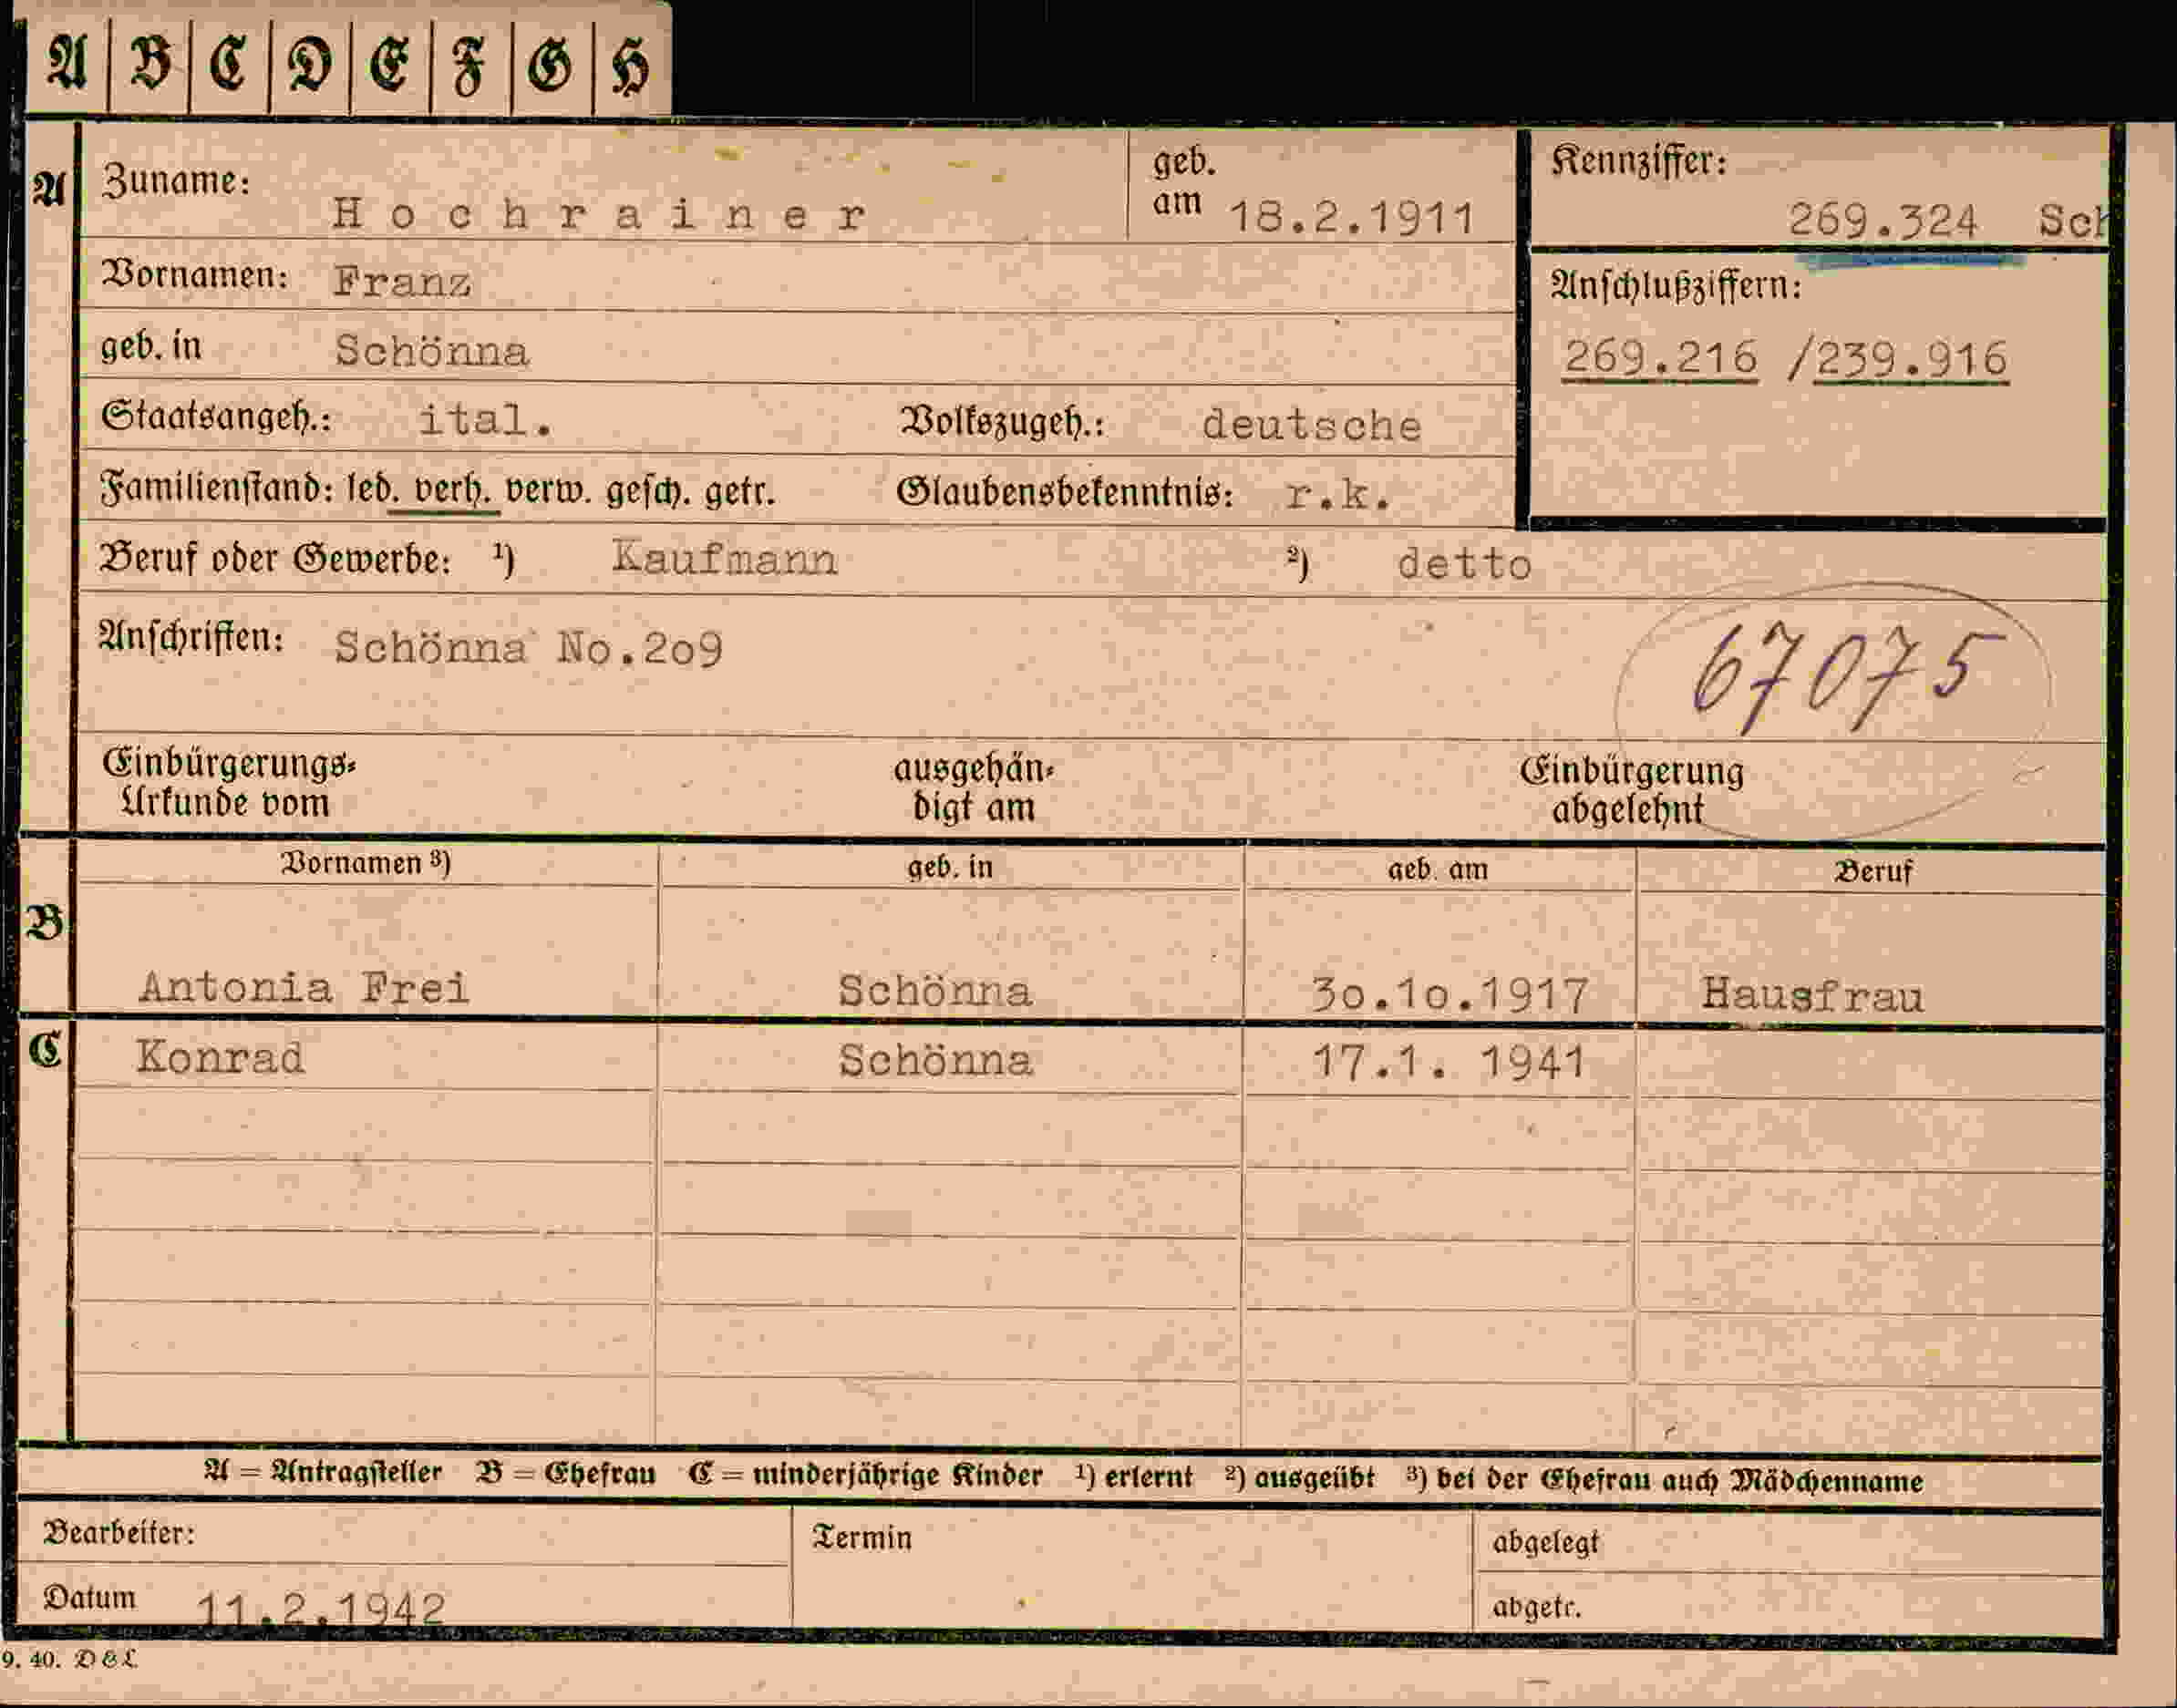 A B C D E F G H
A Zuname: Hochrainer geb. am 18.2.1911
Kennziffer: 269.324 Sch
Vornamen: Franz
Anschlußziffern:
geb. in Schönna
269.216 / 239.916
Staatsangeh.: ital. Volkszugeh.: deutsche
Familienstand: led. verh. verw. gesch. getr. Glaubensbekenntnis: r.k.
Beruf oder Gewerbe: ¹) Kaufmann ²) detto
Anschriften: Schönna No.2o9
67075
Einbürgerungs- ausgehän- Einbürgerung
Urkunde vom digt am abgelehnt
Vornamen ³) geb. in geb. am Beruf
B
Antonia Frei Schönna 3o.1o.1917 Hausfrau
C Konrad Schönna 17.1. 1941
A = Antragsteller B = Ehefrau C = minderjährige Kinder ¹) erlernt ²) ausgeübt ³) bei der Ehefrau auch Mädchenname
Bearbeiter: Termin abgelegt
Datum 11.2.1942 abgetr.
9. 40. D & L